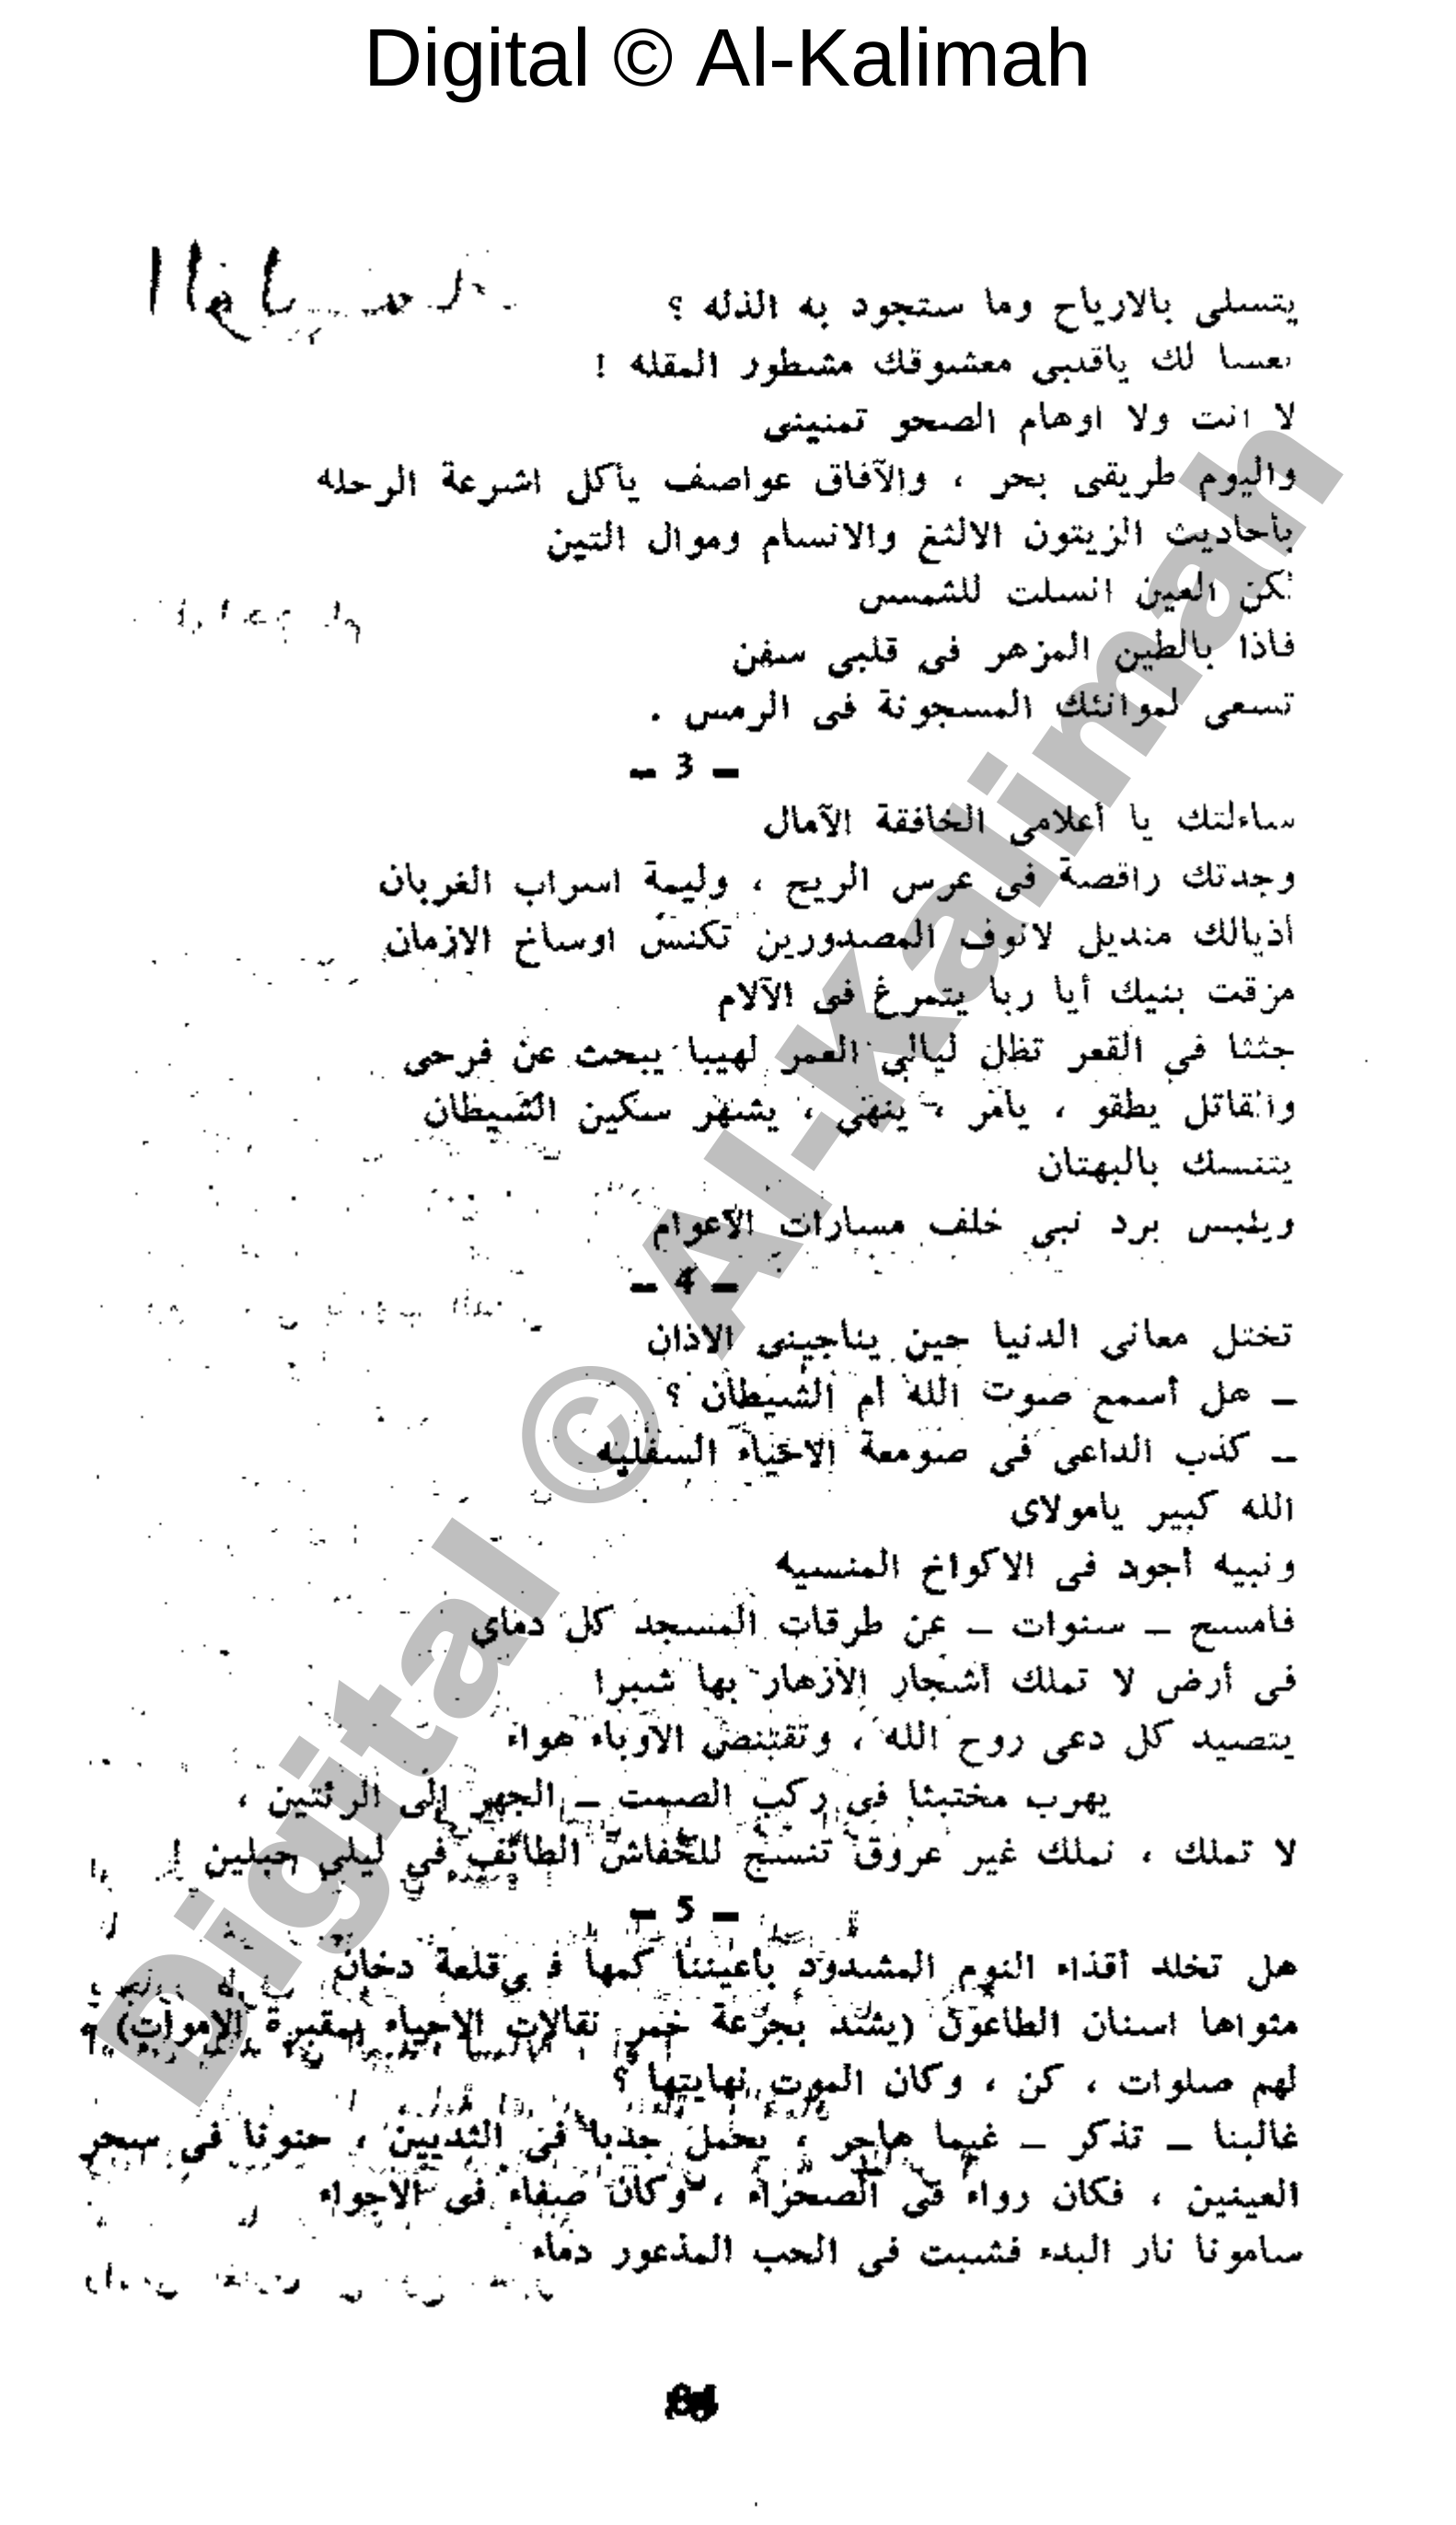 Digital © Al-Kalimah
يتسلى بالارياح وما ستجود به الذله ؟
تعسا لك ياقلبى معشوقك مشطور المقله !
لا انت ولا اوهام الصحو تمنينى
واليوم طريقى بحر ، والآفاق عواصف يأكل اشرعة الرحله
بأحاديث الزيتون الالثغ والانسام وموال التين
لكن العين انسلت للشمس
فاذا بالطين المزهر فى قلبى سفن
تسعى لموانئك المسجونة فى الرمس .
– 3 –
ساءلتك يا أعلامى الخافقة الآمال
وجدتك راقصة فى عرس الريح ، وليمة اسراب الغربان
أذيالك منديل لانوف المصدورين تكنس اوساخ الازمان
مزقت بنيك أيا ربا يتمرغ فى الآلام
جثثا في القعر تظل ليالي العمر لهيبا يبحث عن فرحى
والقاتل يطفو ، يأمر ، ينهى ، يشهر سكين الشيطان
يتنسك بالبهتان
ويلبس برد نبى خلف مسارات الاعوام
– 4 –
تختل معانى الدنيا حين يناجينى الاذان
– هل أسمع صوت الله أم الشيطان ؟
– كذب الداعى فى صومعة الاحياء السفليه
الله كبير يامولاى
ونبيه أجود فى الاكواخ المنسيه
فامسح – سنوات – عن طرقات المسجد كل دماى
فى أرض لا تملك أشجار الازهار بها شبرا
يتصيد كل دعى روح الله ، وتقتنص الاوباء هواء
يهرب مختبئا فى ركب الصمت – الجهر إلى الرئتين ،
لا تملك ، نملك غير عروق تنسج للخفاش الطائف في ليلى حبلين !
– 5 –
هل تخلد أقذاء النوم المشدود بأعيننا كمها فى قلعة دخان
مثواها اسنان الطاعون (يشتد بجرعة خمر نقالات الاحياء بمقبرة الاموات)
لهم صلوات ، كن ، وكان الموت نهايتها ؟
غالبنا – تذكر – غيما هاجر ، يحمل جدبا فى الثديين ، حنونا فى سحر
العينين ، فكان رواء فى الصحراء ، وكان صفاء فى الاجواء
سامونا نار البدء فشبت فى الحب المذعور دماء
84
Digital © Al-Kalimah